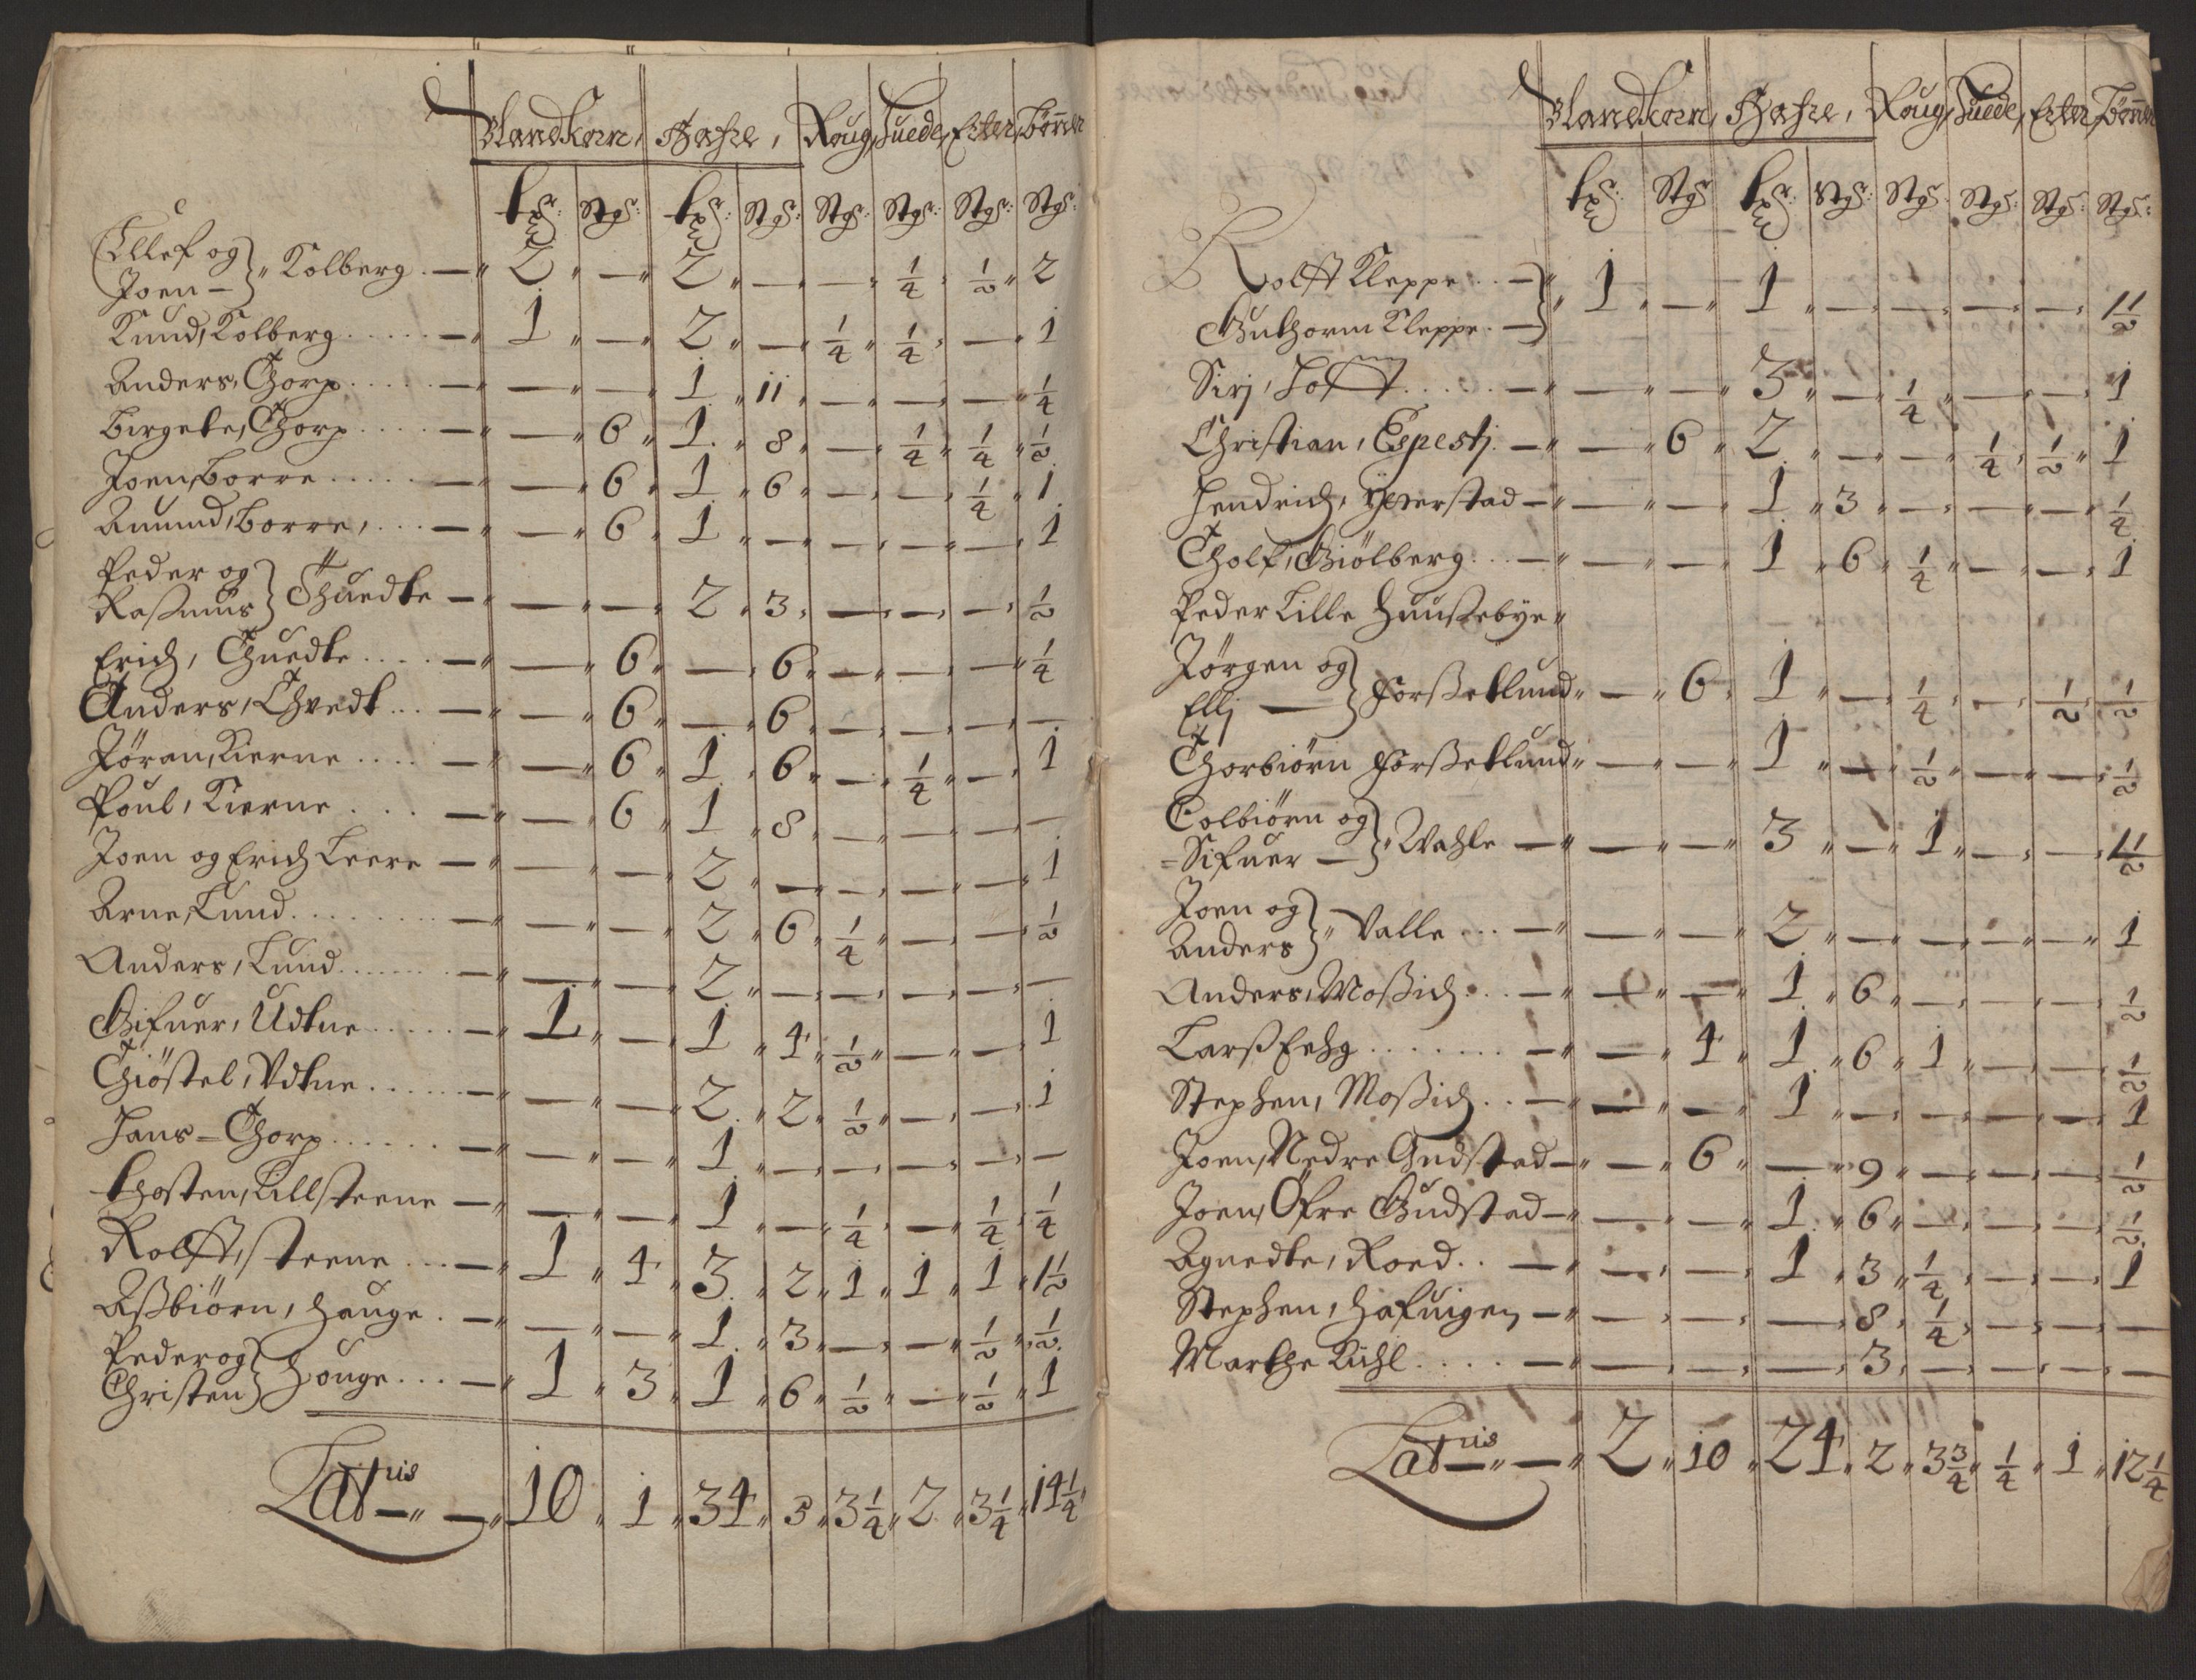 Blandkorn, Hafre, Roug, Huede, Erter, Bønner
Stgr: Stgr: Stgr: Stgr: Stgr: Stgr:
Ellef og
Joen — } Kolberg. — 2 — 2 — — 1/4 1/2 2
Knud, Kolberg..... — 1 — 2 — 1/4 1/4 — 1
Anders, Thorp..... — — — 1 11 — — — 1/4
Birgete, Thorp.... — — 6 1 8 — 1/4 1/4 1/2
Joen, Borre..... — — 6 1 6 — — 1/4 1
Amund, Borre, ... — — 6 1 — — — — 1
Peder og
Rasmus } Thuedte — — — 2 3 — — — 1/2
Erich, Thuedte.... — — 6 — 6 — — — 1/4
Anders, Thvedt... — — 6 — 6 — — — —
Jøran, Kierne.... — — 6 1 6 — 1/4 — 1
Poul, Kierne.... — — 6 1 8 — — — —
Joen og Erich Leere — — — 2 — — — — 1
Arne, Lund......... — — — 2 6 1/4 — — 1/2
Anders, Lund....... — — — 2 — — — — —
Gifuer, Udtne..... — 1 — 1 4 1/2 — — 1
Thiöstel, Vdtne..... — — — 2 2 1/2 — — 1
Hans = Thorp...... — — — 1 — — — — —
Thosten, Lillsteene — — — 1 — 1/4 — 1/4 1/4
Rolfft, steene... — 1 4 3 2 1 1 1 1 1/2
Aßbiörn, Hauge. — — — 1 3 — — 1/2 1/2
Peder og
Christen } Houge... — 1 3 1 6 1/2 — 1/2 1
Latris — 10 1 34 3 3 1/4 2 3 1/4 14 1/4
Blandkorn, Hafre, Roug, Huede, Erter, Bønner
Stgr Stgr: Stgr. Stgr: Stgr: Stgr:
Rolfft Kleppe... —
Guthorm Kleppe. — } 1 — 1 — — — — 1 1/2
Sirj, Tofft...... — — — 3 — 1/4 — — 1
Christian, Espestj. — — 6 2 — — 1/4 1/2 1
Hendrich, Yererstad — — — 1 3 — — — 1/4
Tholf, Giölberg... — — — 1 6 1/4 — — 1
Peder Lille Huusebye
Jørgen og
Ellj — } Forßetlund — 6 1 — 1/4 — 1/2 1/2
Thorbiörn Forßetlund — — 1 — 1/2 — — 1/2
Colbiörn og
= Sifuer — } Wahle — — — 3 — 1 — — 1 1/2
Joen og
Anders } Valle... — — — 2 — — — — 1
Anders, Moßich... — — — 1 6 — — — 1/2
Larß Fehg ........ — — 4 1 6 1 — — 1/2
Stephen, Moßich.. — — — 1 — — — — 1
Joen, Nedre Gudstad — — 6 — 9 — — — 1/2
Joen, Öfre Gudstad — — — 1 6 — — — 1/2
Agnedte, Roed.. — — — 1 3 1/4 — — 1
Stephen, Hafuigen — — — — 8 1/4 — — —
Marthe Kihl.... — — — — 3 — — — —
Latris — 2 10 24 2 3 3/4 1/4 1 12 1/4